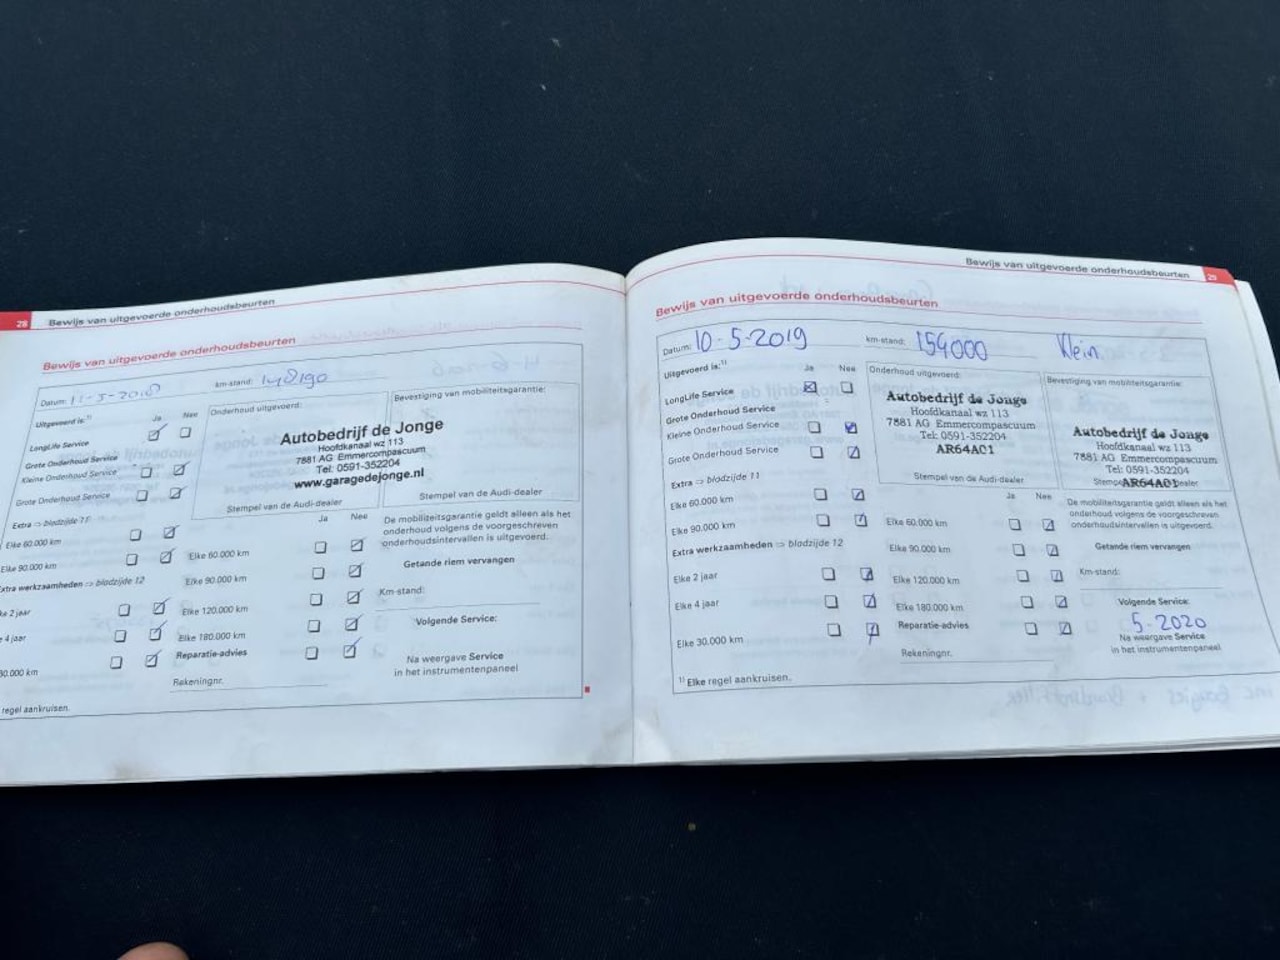 28 Bewijs van uitgevoerde onderhoudsbeurten
Bewijs van uitgevoerde onderhoudsbeurten
Datum: 11-5-2018 km-stand: 148190
Uitgevoerd is:¹⁾ Ja Nee
Onderhoud uitgevoerd:
Bevestiging van mobiliteitsgarantie:
LongLife Service
Grote Onderhoud Service
Kleine Onderhoud Service
Grote Onderhoud Service
Autobedrijf de Jonge
Hoofdkanaal wz 113
7881 AG Emmercompascuum
Tel: 0591-352204
www.garagedejonge.nl
Stempel van de Audi-dealer
Stempel van de Audi-dealer
Extra ⇨ bladzijde 11
Elke 60.000 km
Elke 90.000 km
Extra werkzaamheden ⇨ bladzijde 12
ke 2 jaar
e 4 jaar
30.000 km
Ja Nee
Elke 60.000 km
Elke 90.000 km
Elke 120.000 km
Elke 180.000 km
Reparatie-advies
Rekeningnr.
De mobiliteitsgarantie geldt alleen als het
onderhoud volgens de voorgeschreven
onderhoudsintervallen is uitgevoerd.
Getande riem vervangen
Km-stand:
Volgende Service:
Na weergave Service
in het instrumentenpaneel
regel aankruisen.
Bewijs van uitgevoerde onderhoudsbeurten 29
Bewijs van uitgevoerde onderhoudsbeurten
Datum: 10-5-2019 km-stand: 154000 Klein.
Uitgevoerd is:¹⁾ Ja Nee
Onderhoud uitgevoerd:
Bevestiging van mobiliteitsgarantie:
LongLife Service
Grote Onderhoud Service
Kleine Onderhoud Service
Grote Onderhoud Service
Autobedrijf de Jonge
Hoofdkanaal wz 113
7881 AG Emmercompascuum
Tel: 0591-352204
AR64A01
Stempel van de Audi-dealer
Autobedrijf de Jonge
Hoofdkanaal wz 113
7881 AG Emmercompascuum
Tel: 0591-352204
AR64A01
Extra ⇨ bladzijde 11
Elke 60.000 km
Elke 90.000 km
Extra werkzaamheden ⇨ bladzijde 12
Elke 2 jaar
Elke 4 jaar
Elke 30.000 km
Ja Nee
Elke 60.000 km
Elke 90.000 km
Elke 120.000 km
Elke 180.000 km
Reparatie-advies
Rekeningnr.
De mobiliteitsgarantie geldt alleen als het
onderhoud volgens de voorgeschreven
onderhoudsintervallen is uitgevoerd.
Getande riem vervangen
Km-stand:
Volgende Service:
5-2020
Na weergave Service
in het instrumentenpaneel
¹⁾ Elke regel aankruisen.